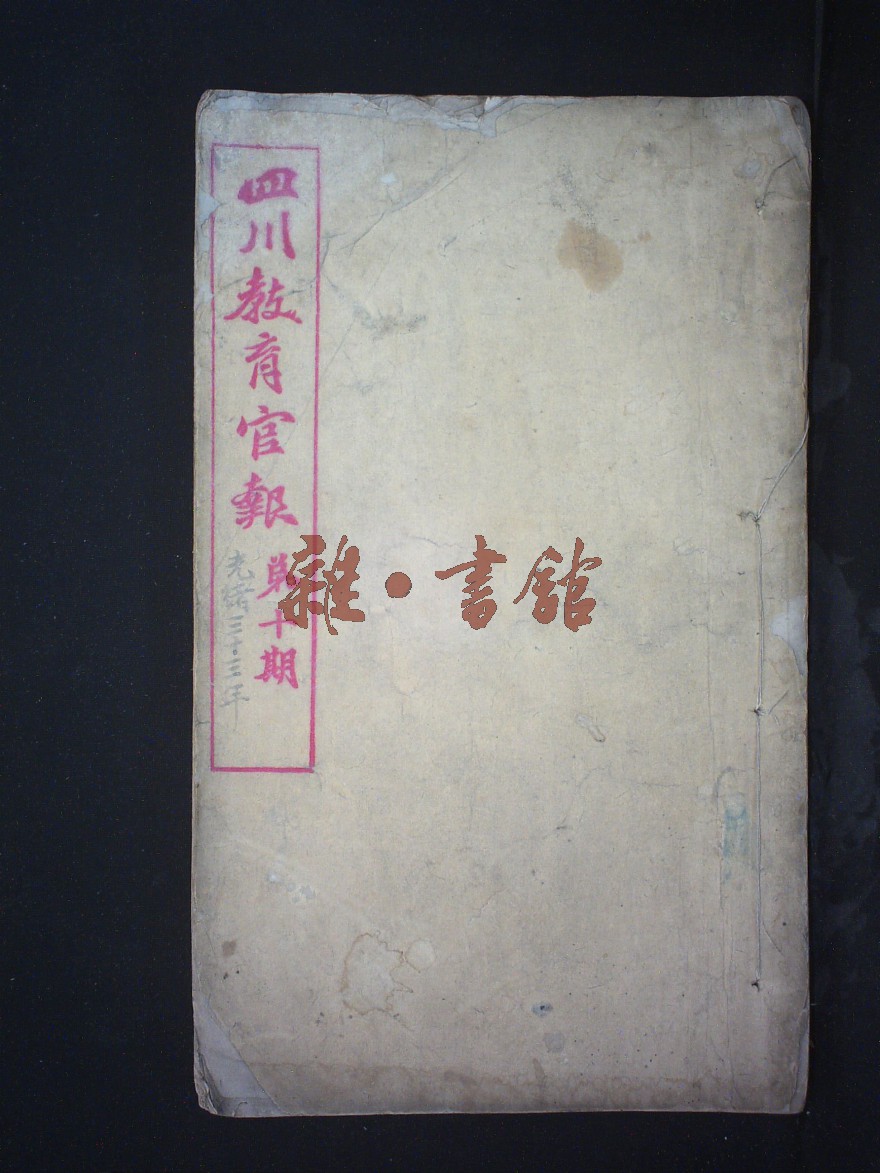 四川教育官報
第十期
光緒三十三年
雜·書館